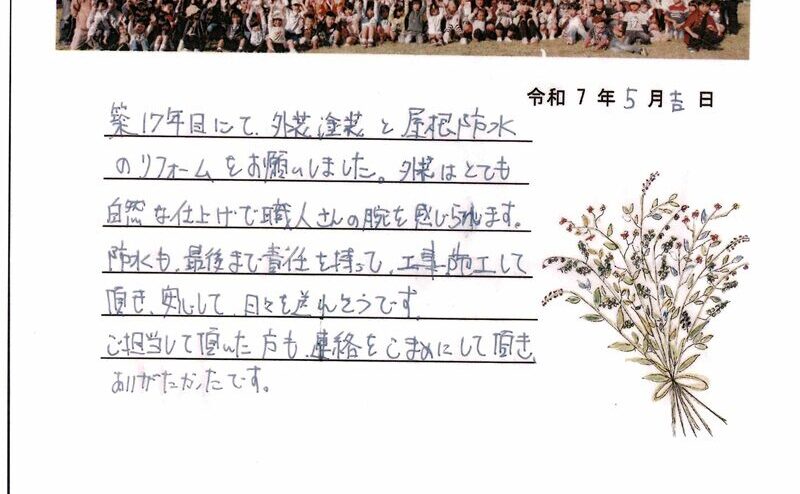 令和 7 年 5 月 吉 日
築17年目にて、外装塗装と屋根防水
のリフォームをお願いしました。外装はとても
自然な仕上げで職人さんの腕を感じられます。
防水も、最後まで責任を持って、工事施工して
頂き、安心して、日々を送れそうです。
ご担当して頂いた方も、連絡をこまめにして頂き、
ありがたかったです。